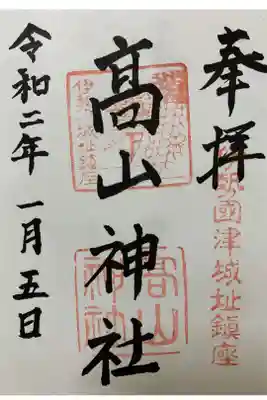 奉拝
國津城址鎮座
髙山神社
髙山神社
令和二年一月五日